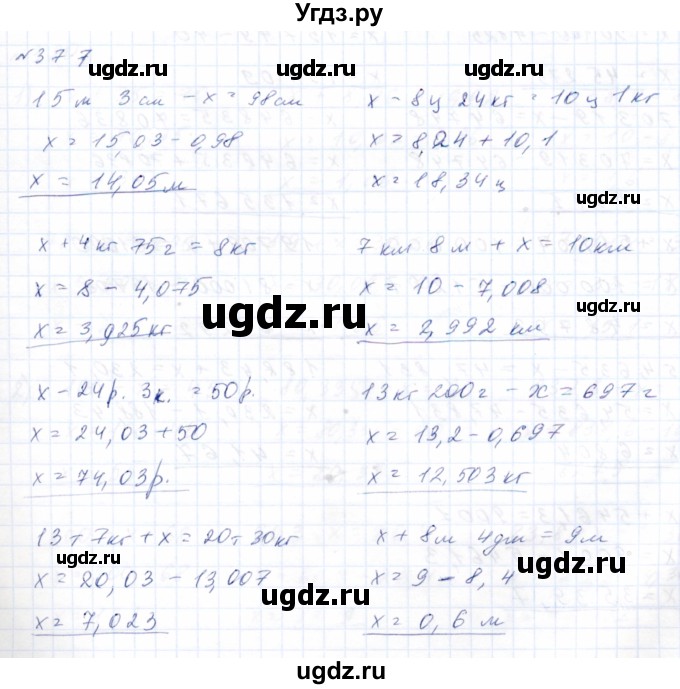 Угдз.ру
№377
ugdz.ru
ugdz.ru
15 м 3 см - x = 98 см
x = 15,03 - 0,98
x = 14,05 м
x - 8 ц 24 кг = 10 ц 1 кг
x = 8,24 + 10,1
x = 18,34 ц
ugdz.ru
ugdz.ru
x + 4 кг 75 г = 8 кг
x = 8 - 4,075
x = 3,925 кг
7 км 8 м + x = 10 км
x = 10 - 7,008
x = 2,992 км
ugdz.ru
ugdz.ru
x - 24 р. 3 к. = 50 р.
x = 24,03 + 50
x = 74,03 р.
13 кг 200 г - x = 697 г
x = 13,2 - 0,697
x = 12,503 кг
ugdz.ru
ugdz.ru
13 т 7 кг + x = 20 т 30 кг
x = 20,03 - 13,007
x = 7,023
x + 8 м 4 дм = 9 м
x = 9 - 8,4
x = 0,6 м
ugdz.ru
ugdz.ru
ugdz.ru